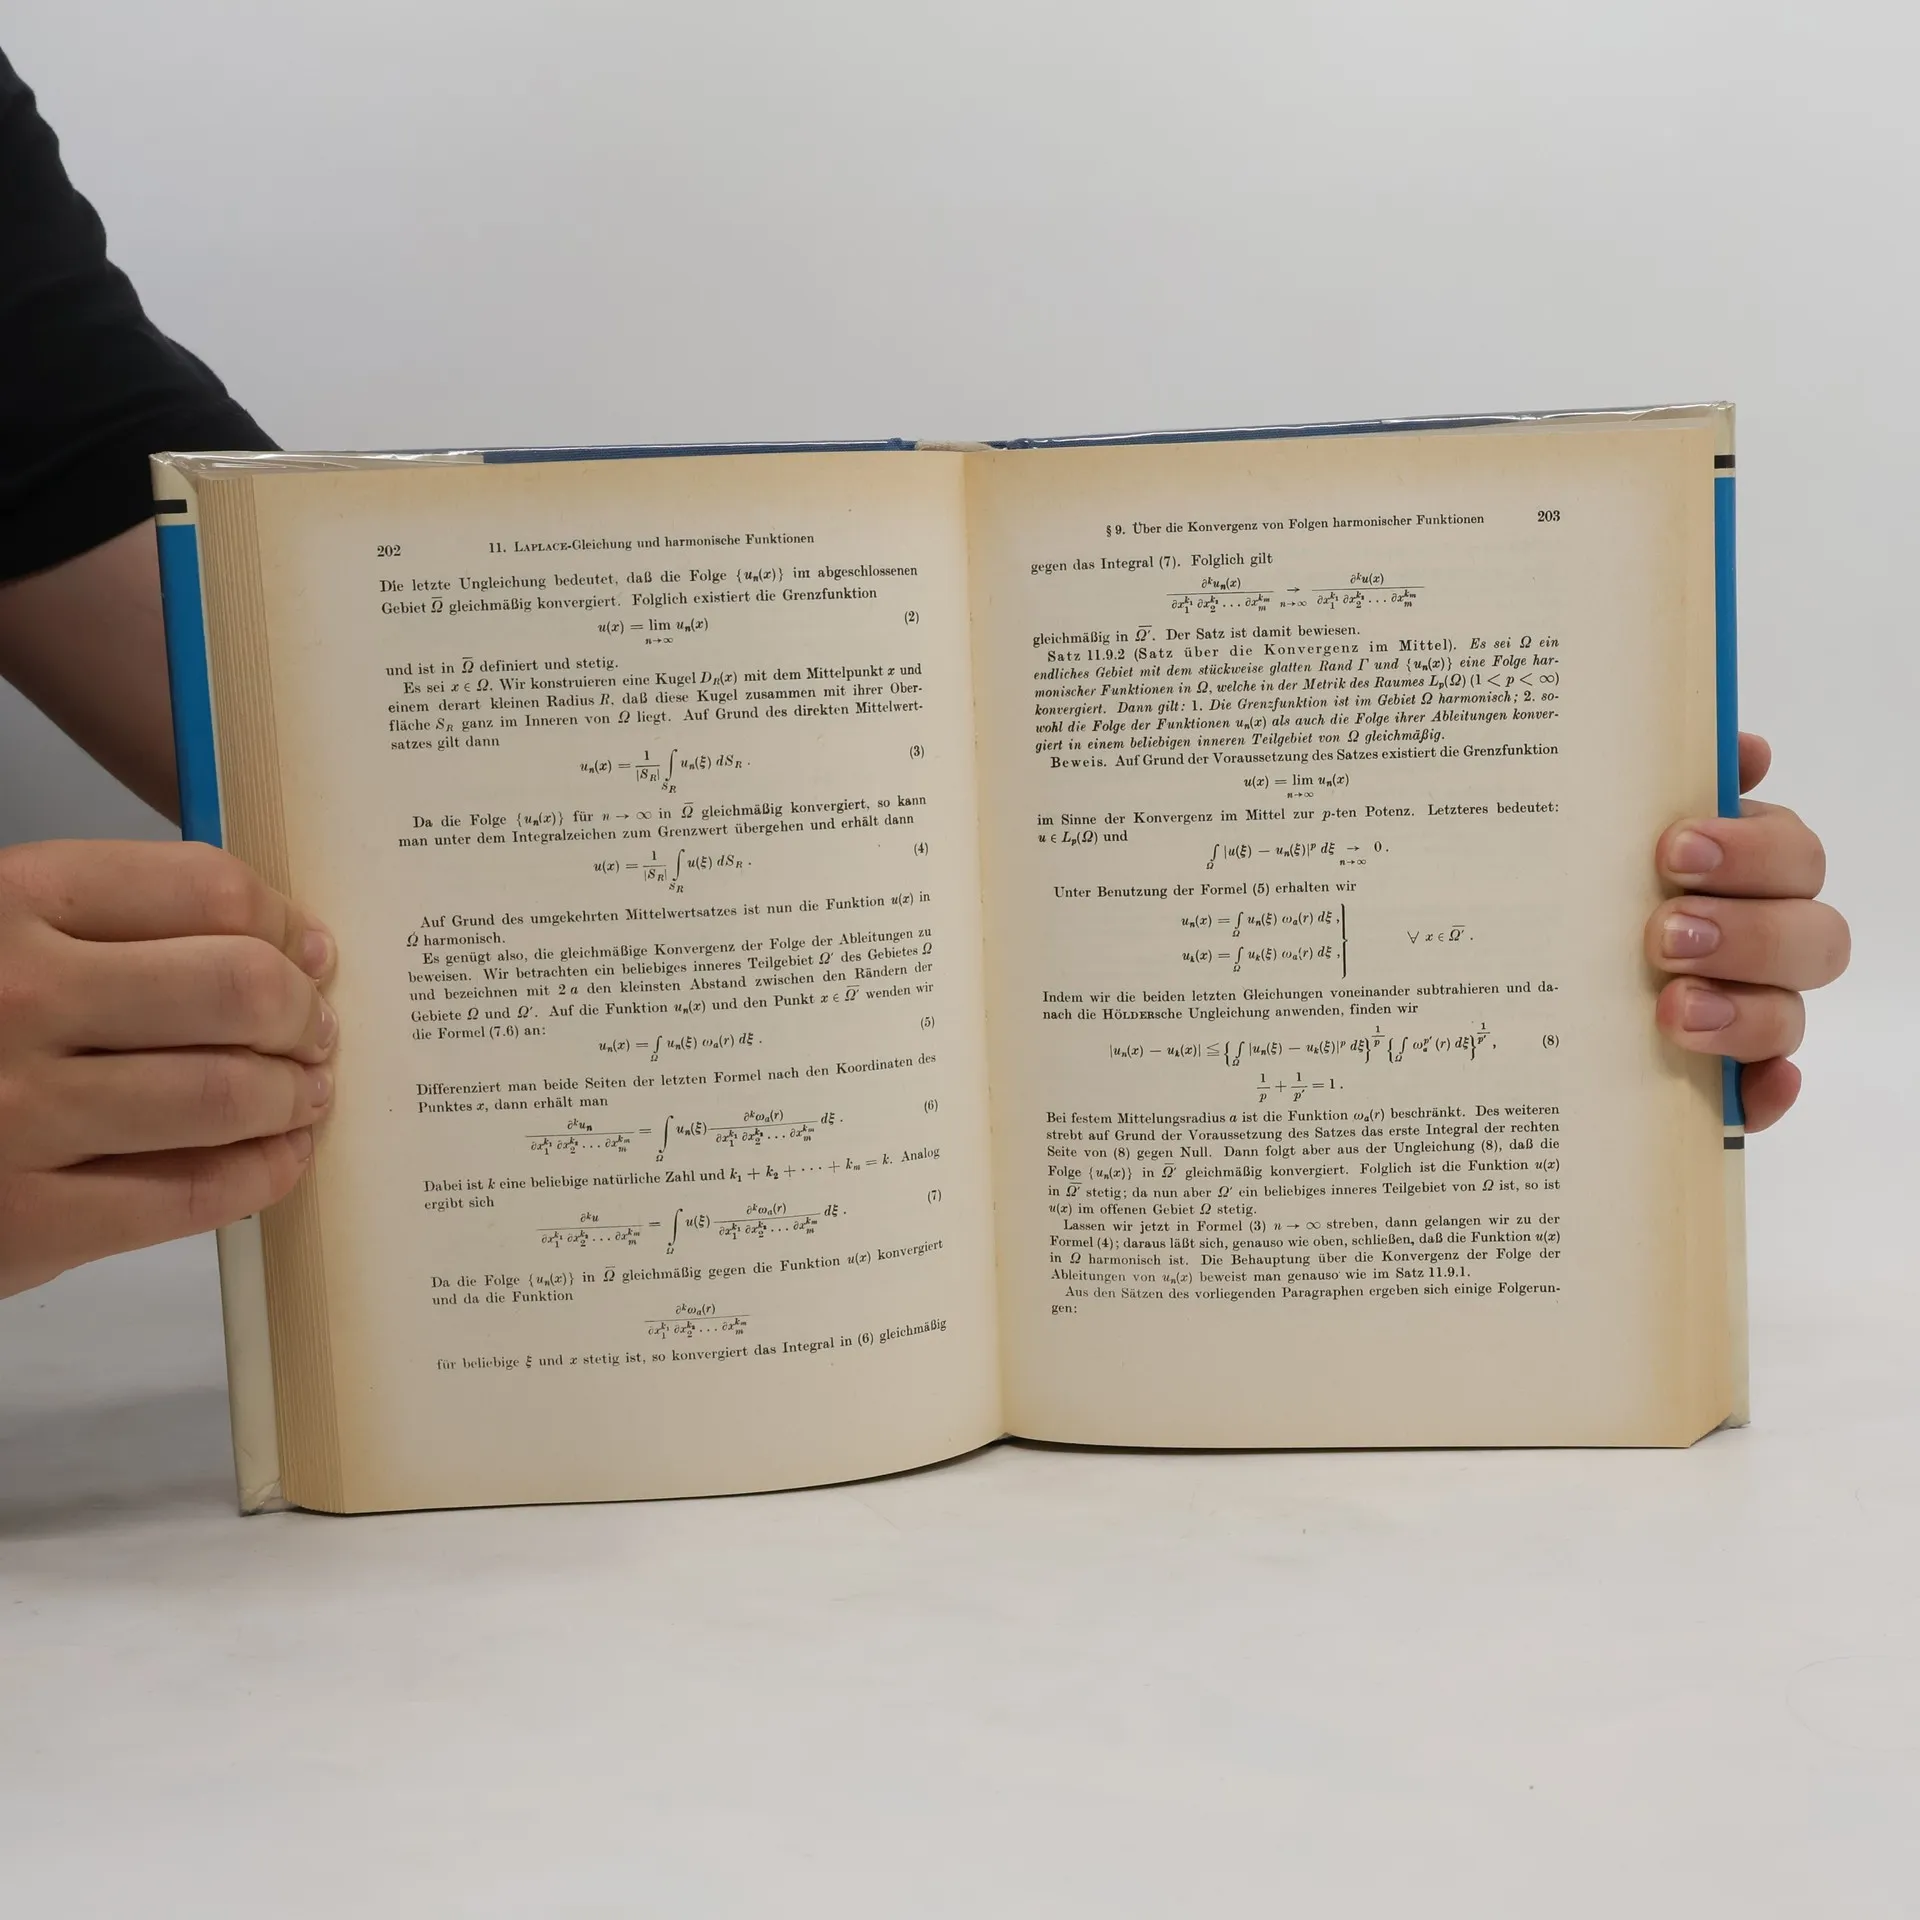 202 11. LAPLACE-Gleichung und harmonische Funktionen
Die letzte Ungleichung bedeutet, daß die Folge {uₙ(x)} im abgeschlossenen
Gebiet Ω̅ gleichmäßig konvergiert. Folglich existiert die Grenzfunktion
u(x) = lim_{n→∞} uₙ(x) (2)
und ist in Ω̅ definiert und stetig.
Es sei x ∈ Ω. Wir konstruieren eine Kugel D_R(x) mit dem Mittelpunkt x und
einem derart kleinen Radius R, daß diese Kugel zusammen mit ihrer Ober-
fläche S_R ganz im Inneren von Ω liegt. Auf Grund des direkten Mittelwert-
satzes gilt dann
uₙ(x) = 1/|S_R| ∫_{S_R} uₙ(ξ) dS_R . (3)
Da die Folge {uₙ(x)} für n → ∞ in Ω̅ gleichmäßig konvergiert, so kann
man unter dem Integralzeichen zum Grenzwert übergehen und erhält dann
u(x) = 1/|S_R| ∫_{S_R} u(ξ) dS_R . (4)
Auf Grund des umgekehrten Mittelwertsatzes ist nun die Funktion u(x) in
Ω harmonisch.
Es genügt also, die gleichmäßige Konvergenz der Folge der Ableitungen zu
beweisen. Wir betrachten ein beliebiges inneres Teilgebiet Ω′ des Gebietes Ω
und bezeichnen mit 2 a den kleinsten Abstand zwischen den Rändern der
Gebiete Ω und Ω′. Auf die Funktion uₙ(x) und den Punkt x ∈ Ω̅′ wenden wir
die Formel (7.6) an:
uₙ(x) = ∫_Ω uₙ(ξ) ω_a(r) dξ . (5)
Differenziert man beide Seiten der letzten Formel nach den Koordinaten des
Punktes x, dann erhält man
∂ᵏuₙ / ∂x₁^{k₁} ∂x₂^{k₂} ... ∂x_m^{k_m} = ∫_Ω uₙ(ξ) ∂ᵏω_a(r) / ∂x₁^{k₁} ∂x₂^{k₂} ... ∂x_m^{k_m} dξ . (6)
Dabei ist k eine beliebige natürliche Zahl und k₁ + k₂ + ··· + k_m = k. Analog
ergibt sich
∂ᵏu / ∂x₁^{k₁} ∂x₂^{k₂} ... ∂x_m^{k_m} = ∫_Ω u(ξ) ∂ᵏω_a(r) / ∂x₁^{k₁} ∂x₂^{k₂} ... ∂x_m^{k_m} dξ . (7)
Da die Folge {uₙ(x)} in Ω̅ gleichmäßig gegen die Funktion u(x) konvergiert
und da die Funktion
∂ᵏω_a(r) / ∂x₁^{k₁} ∂x₂^{k₂} ... ∂x_m^{k_m}
für beliebige ξ und x stetig ist, so konvergiert das Integral in (6) gleichmäßig
§ 9. Über die Konvergenz von Folgen harmonischer Funktionen 203
gegen das Integral (7). Folglich gilt
∂ᵏuₙ(x) / ∂x₁^{k₁} ∂x₂^{k₂} ... ∂x_m^{k_m} →_{n→∞} ∂ᵏu(x) / ∂x₁^{k₁} ∂x₂^{k₂} ... ∂x_m^{k_m}
gleichmäßig in Ω̅′. Der Satz ist damit bewiesen.
Satz 11.9.2 (Satz über die Konvergenz im Mittel). Es sei Ω ein
endliches Gebiet mit dem stückweise glatten Rand Γ und {uₙ(x)} eine Folge har-
monischer Funktionen in Ω, welche in der Metrik des Raumes L_p(Ω) (1 < p < ∞)
konvergiert. Dann gilt: 1. Die Grenzfunktion ist im Gebiet Ω harmonisch; 2. so-
wohl die Folge der Funktionen uₙ(x) als auch die Folge ihrer Ableitungen konver-
giert in einem beliebigen inneren Teilgebiet von Ω gleichmäßig.
Beweis. Auf Grund der Voraussetzung des Satzes existiert die Grenzfunktion
u(x) = lim_{n→∞} uₙ(x)
im Sinne der Konvergenz im Mittel zur p-ten Potenz. Letzteres bedeutet:
u ∈ L_p(Ω) und
∫_Ω |u(ξ) − uₙ(ξ)|ᵖ dξ →_{n→∞} 0 .
Unter Benutzung der Formel (5) erhalten wir
uₙ(x) = ∫_Ω uₙ(ξ) ω_a(r) dξ ,
u_k(x) = ∫_Ω u_k(ξ) ω_a(r) dξ , } ∀ x ∈ Ω̅′ .
Indem wir die beiden letzten Gleichungen voneinander subtrahieren und da-
nach die HÖLDERsche Ungleichung anwenden, finden wir
|uₙ(x) − u_k(x)| ≦ {∫_Ω |uₙ(ξ) − u_k(ξ)|ᵖ dξ}^{1/p} {∫_Ω ω_a^{p′}(r) dξ}^{1/p′} , (8)
1/p + 1/p′ = 1 .
Bei festem Mittelungsradius a ist die Funktion ω_a(r) beschränkt. Des weiteren
strebt auf Grund der Voraussetzung des Satzes das erste Integral der rechten
Seite von (8) gegen Null. Dann folgt aber aus der Ungleichung (8), daß die
Folge {uₙ(x)} in Ω̅′ gleichmäßig konvergiert. Folglich ist die Funktion u(x)
in Ω̅′ stetig; da nun aber Ω′ ein beliebiges inneres Teilgebiet von Ω ist, so ist
u(x) im offenen Gebiet Ω stetig.
Lassen wir jetzt in Formel (3) n → ∞ streben, dann gelangen wir zu der
Formel (4); daraus läßt sich, genauso wie oben, schließen, daß die Funktion u(x)
in Ω harmonisch ist. Die Behauptung über die Konvergenz der Folge der
Ableitungen von uₙ(x) beweist man genauso wie im Satz 11.9.1.
Aus den Sätzen des vorliegenden Paragraphen ergeben sich einige Folgerun-
gen: